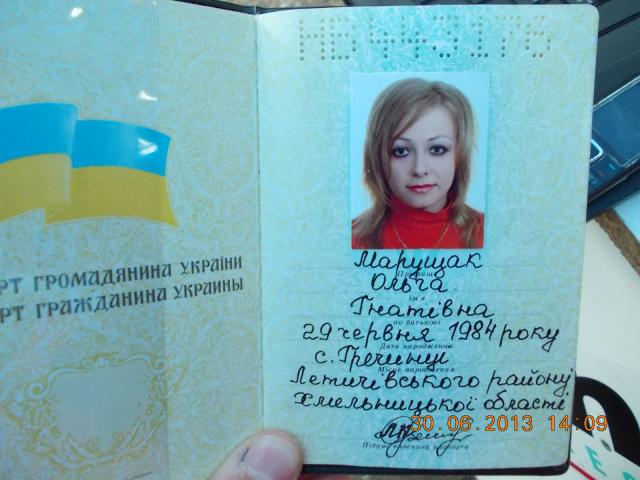 РТ ГРОМАДЯНИНА УКРАЇНИ
РТ ГРАЖДАНИНА УКРАИНЫ
Марущак
Прізвище
Ольга
ім'я
Гнатівна
по батькові
29 червня 1984 року
Дата народження
с. Гречинці
Місце народження
Летичівського району
Хмельницької області
30.06.2013 14:09
Підпис власника паспорта